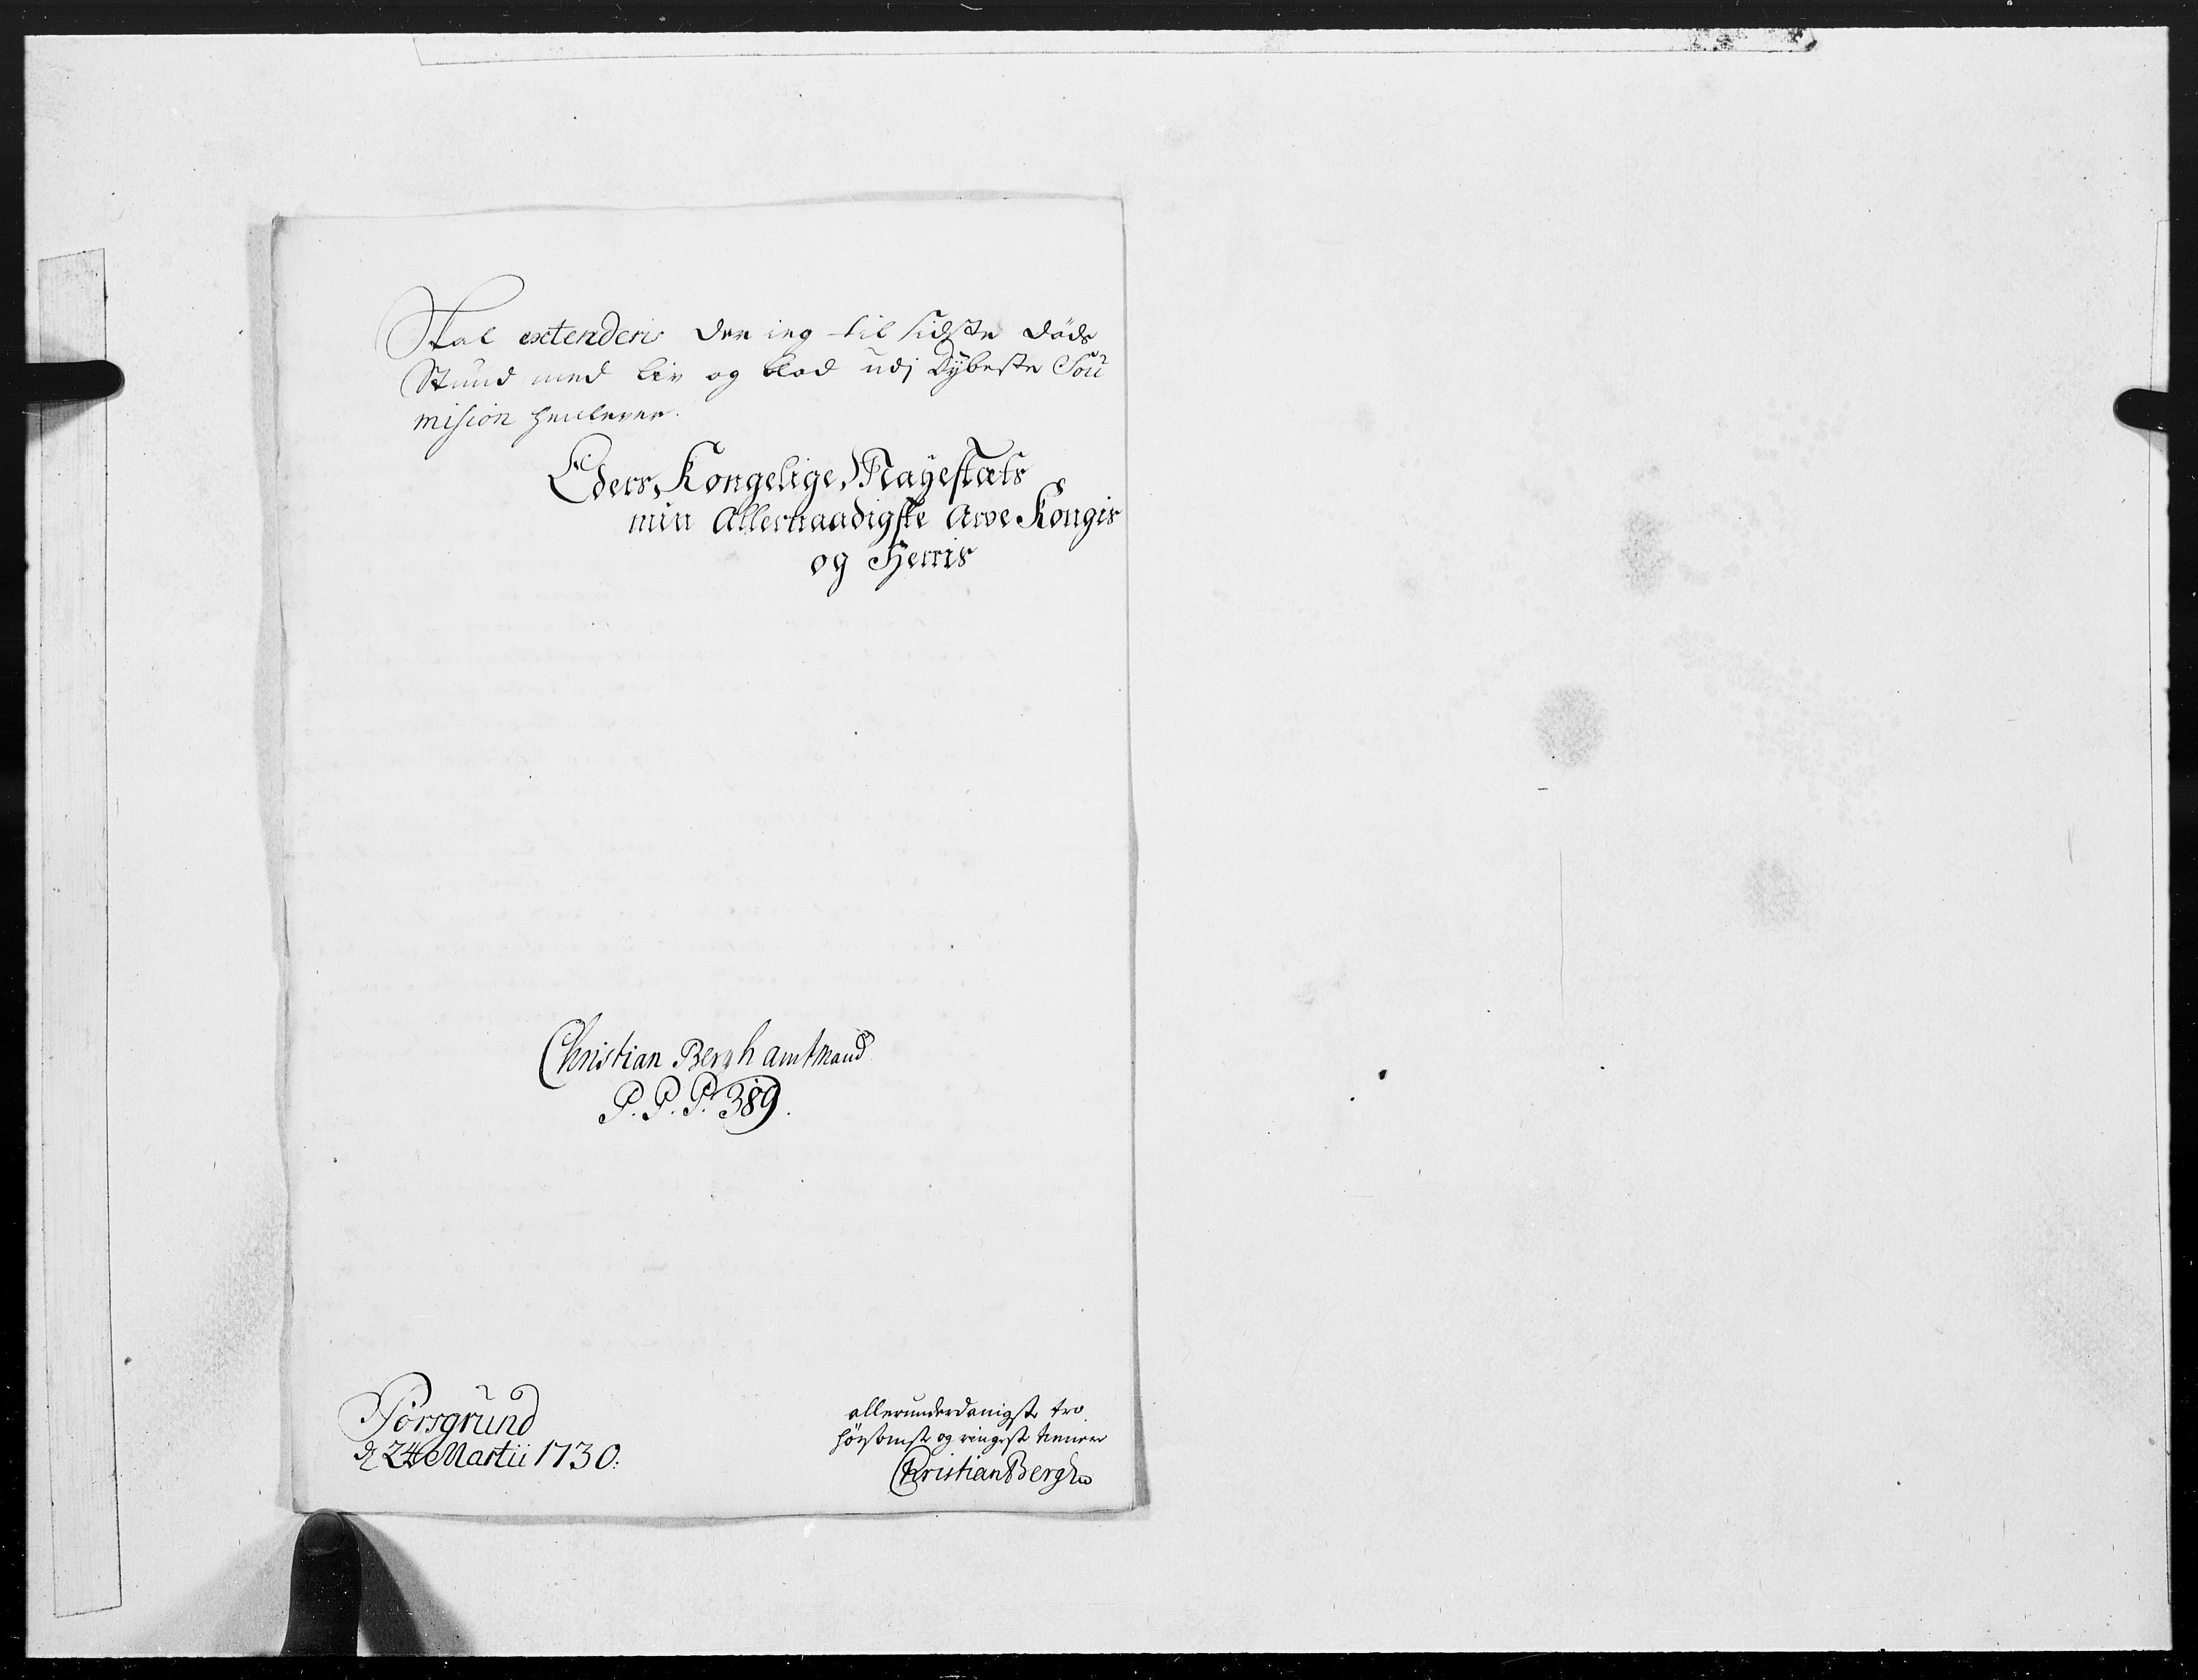 Skal extenderis der ieg til sidste døds
Stünd med liv og blod udj dÿbeste Soü
mision henlever.
Eders Kongelige Mayestæts
min Allernaadigste Arve Kongis
og Herris
Christian Bergh amtmand
P. P. P. 389.
Porsgründ
d 24 Martii 1730.
allerunderdanigste tro
hørsomste og ringeste tienere
Christian Bergh